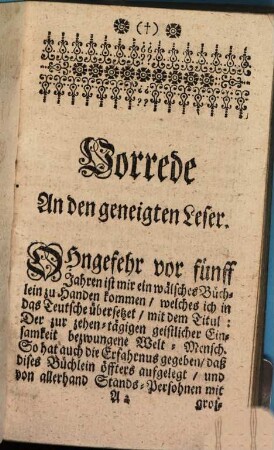 (†)
Vorrede
An den geneigten Leser.
OHngefehr vor fünff
Jahren ist mir ein wälsches Büch-
lein zu Handen kommen / welches ich in
das Teutsche übersetzet / mit dem Titul:
Der zur zehen-tägigen geistlicher Ein-
samkeit bezwungene Welt-Mensch.
So hat auch die Erfahrnus gegeben / daß
dises Büchlein öffters aufgelegt / und
von allerhand Stands-Persohnen mit
A 2 gros-